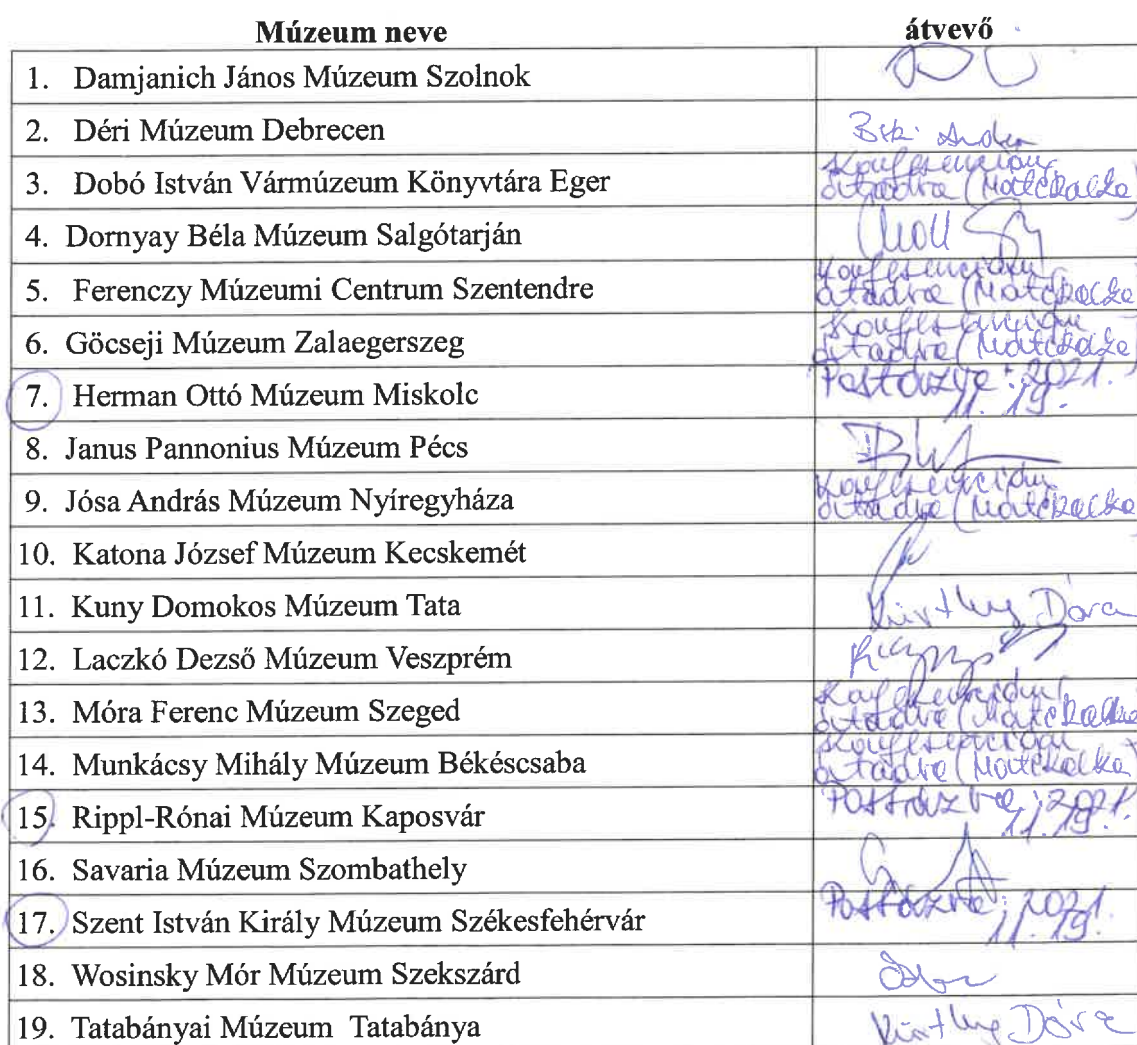 Múzeum neve átvevő
1. Damjanich János Múzeum Szolnok
2. Déri Múzeum Debrecen
3. Dobó István Vármúzeum Könyvtára Eger Konferencián
átadva (Matchalka)
4. Dornyay Béla Múzeum Salgótarján
5. Ferenczy Múzeumi Centrum Szentendre Konferencián
átadva (Matchalka)
6. Göcseji Múzeum Zalaegerszeg Konferencián
átadva (Matchalka)
7. Herman Ottó Múzeum Miskolc Postázva: 2021.
11. 19.
8. Janus Pannonius Múzeum Pécs
9. Jósa András Múzeum Nyíregyháza Konferencián
átadva (Matchalka)
10. Katona József Múzeum Kecskemét
11. Kuny Domokos Múzeum Tata Kürthy Dóra
12. Laczkó Dezső Múzeum Veszprém
13. Móra Ferenc Múzeum Szeged Konferencián
átadva (Matchalka)
14. Munkácsy Mihály Múzeum Békéscsaba Konferencián
átadva (Matchalka)
15. Rippl-Rónai Múzeum Kaposvár Postázva: 2021.
11. 19.
16. Savaria Múzeum Szombathely
17. Szent István Király Múzeum Székesfehérvár Postázva: 2021.
11. 19.
18. Wosinsky Mór Múzeum Szekszárd
19. Tatabányai Múzeum Tatabánya Kürthy Dóra